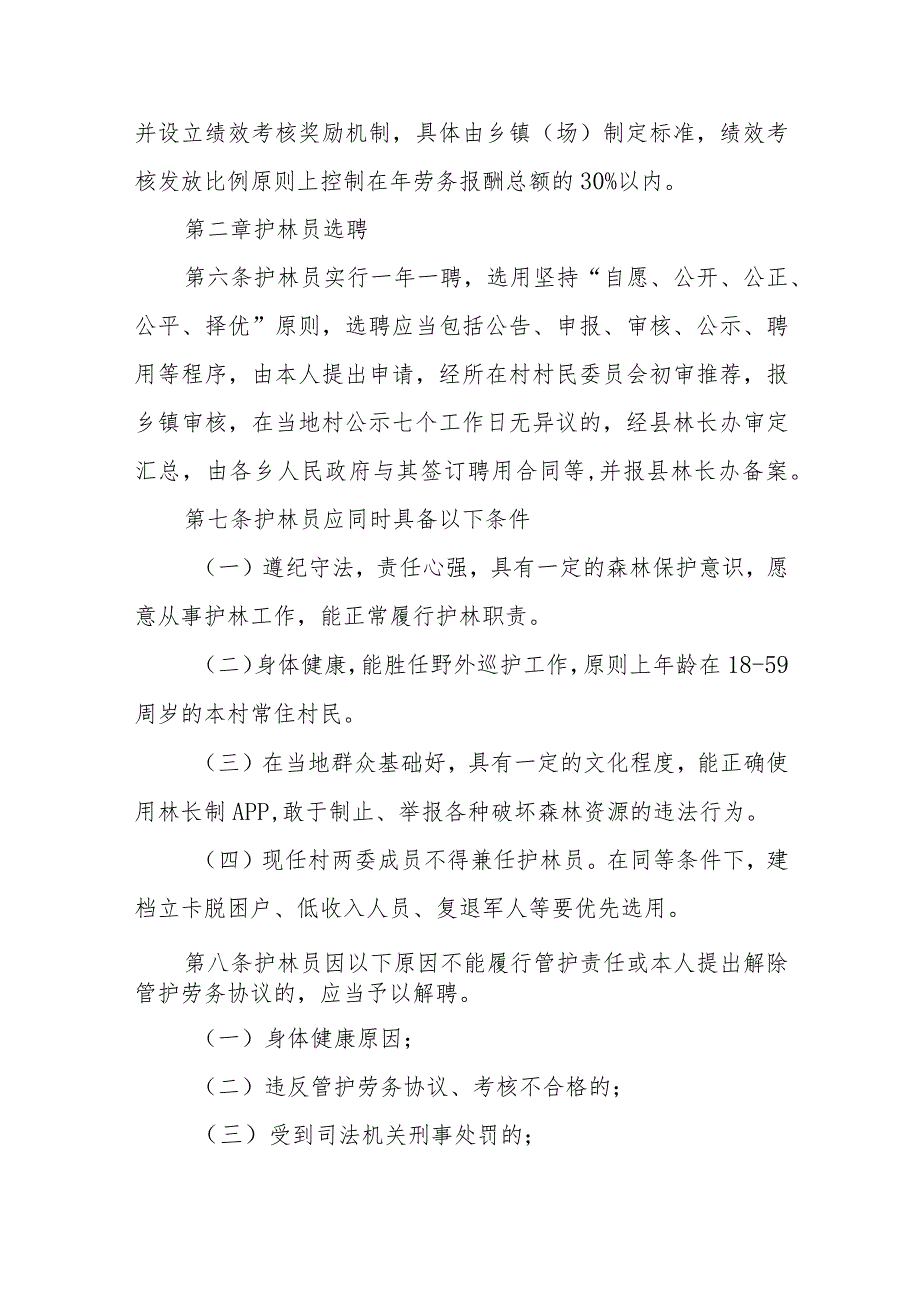 并设立绩效考核奖励机制，具体由乡镇（场）制定标准，绩效考
核发放比例原则上控制在年劳务报酬总额的30%以内。
第二章护林员选聘
第六条护林员实行一年一聘，选用坚持“自愿、公开、公正、
公平、择优”原则，选聘应当包括公告、申报、审核、公示、聘
用等程序，由本人提出申请，经所在村村民委员会初审推荐，报
乡镇审核，在当地村公示七个工作日无异议的，经县林长办审定
汇总，由各乡人民政府与其签订聘用合同等,并报县林长办备案。
第七条护林员应同时具备以下条件
（一）遵纪守法，责任心强，具有一定的森林保护意识，愿
意从事护林工作，能正常履行护林职责。
（二）身体健康，能胜任野外巡护工作，原则上年龄在18-59
周岁的本村常住村民。
（三）在当地群众基础好，具有一定的文化程度，能正确使
用林长制APP,敢于制止、举报各种破坏森林资源的违法行为。
（四）现任村两委成员不得兼任护林员。在同等条件下，建
档立卡脱困户、低收入人员、复退军人等要优先选用。
第八条护林员因以下原因不能履行管护责任或本人提出解除
管护劳务协议的，应当予以解聘。
（一）身体健康原因；
（二）违反管护劳务协议、考核不合格的；
（三）受到司法机关刑事处罚的；